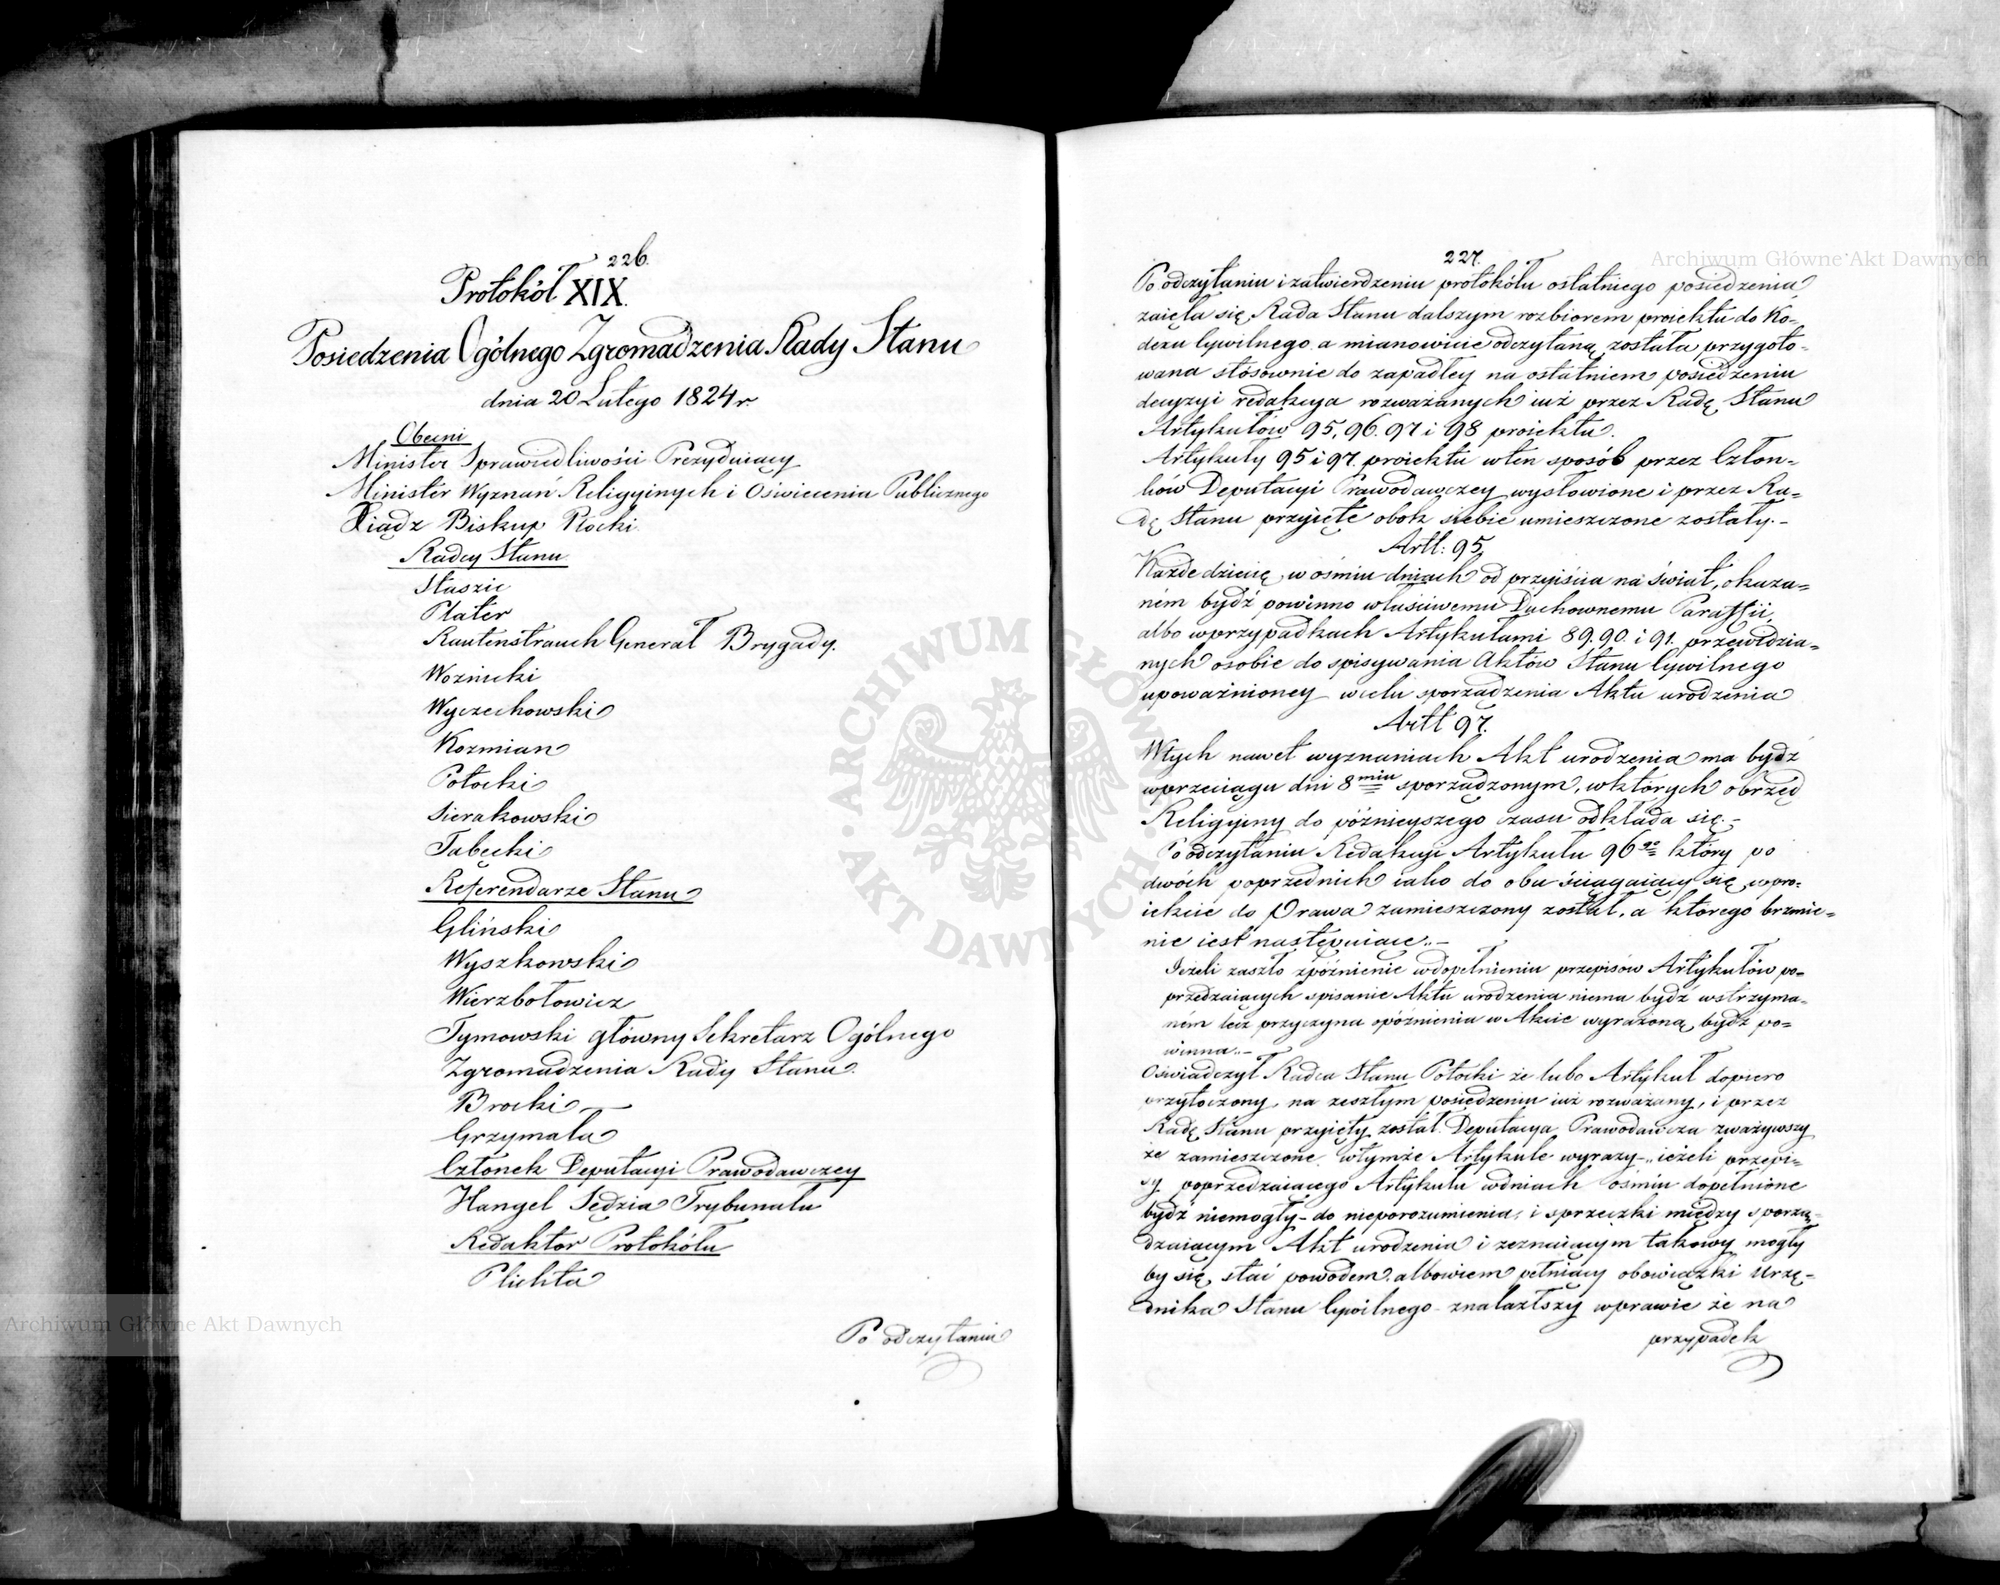 226.
Protokół XIX.
Posiedzenia Ogólnego Zgromadzenia Rady Stanu
dnia 20 Lutego 1824 r.
Obecni
Minister Sprawiedliwości Prezyduiący
Minister Wyznań Religyinych i Oświecenia Publicznego
Xiądz Biskup Płocki
Radcy Stanu
Staszic
Plater
Rautenstrauch Generał Brygady.
Woznicki
Wyczechowski
Kozmian
Potocki
Sierakowski
Tabęcki
Referendarze Stanu
Gliński
Wyszkowski
Wierzbołowicz
Tymowski główny Sekretarz Ogólnego
Zgromadzenia Rady Stanu.
Brocki
Grzymała
Członek Deputacyi Prawodawczey
Hangel Sędzia Trybunału
Redaktor Protokółu
Plichta
Po odczytaniu
227.
Po odczytaniu i zatwierdzeniu protokółu ostatniego posiedzenia
zaięła się Rada Stanu dalszym rozbiorem proiektu do Ko-
dexu Cywilnego. a mianowicie odczytaną została przygoto-
wana stósownie do zapadłey na ostatniem posiedzeniu
decyzyi redakcya rozważanych iuż przez Radę Stanu
Artykułów 95, 96. 97 i 98 proiektu.
Artykuły 95 i 97. proiektu w ten sposób przez Człon-
ków Deputacyi Prawodawczey wysłowione i przez Ra-
dę Stanu przyięte obok siebie umieszczone zostały.-
Artt: 95.
Każde dziecię, w ośmiu dniach od przyiścia na świat, okaza-
ném bydź powinno właściwemu Duchownemu Paraffii,
albo w przypadkach Artykułami 89. 90. i 91. przewidzia-
nych osobie do spisywania Aktów Stanu Cywilnego
upoważnioney w celu sporządzenia Aktu urodzenia
Artt 97.
W tych nawet wyznaniach Akt urodzenia ma bydź
w przeciągu dni 8miu sporządzonym, w których obrzęd
Religyiny do późnieyszego czasu odkłada się.-
Po odczytaniu Redakcyi Artykułu 96go który po
dwóch poprzednich iako do obu ściągaiący się w pro-
iekcie do Prawa zamieszczony został, a którego brzmie-
nie iest następuiące.-
Jeżeli zaszło zpóźnienie w dopełnieniu przepisów Artykułów po-
przedzaiących spisanie Aktu urodzenia niema bydź wstrzyma-
ném lecz przyczyna opóźnienia w Akcie wyrażoną bydź po-
winna.-
Oświadczył Radca Stanu Potocki że lubo Artykuł dopiero
przytoczony na zeszłym posiedzeniu iuż rozważany, i przez
Radę Stanu przyięty został. Deputacya Prawodawcza zważywszy
że zamieszczone w tymże Artykule wyrazy - „ieżeli przepi-
sy poprzedzaiącego Artykułu w dniach ośmiu dopełnione
bydź niemogły - do nieporozumienia, i sprzeczki między sporzą-
dzaiącym Akt urodzenia i zeznaiącym takowy mogły
by się stać powodem. albowiem pełniący obowiązki Urzę-
dnika Stanu Cywilnego znalazłszy w prawie że na
przypadek
Archiwum Główne Akt Dawnych
Archiwum Główne Akt Dawnych
ARCHIWUM GŁÓWNE AKT DAWNYCH